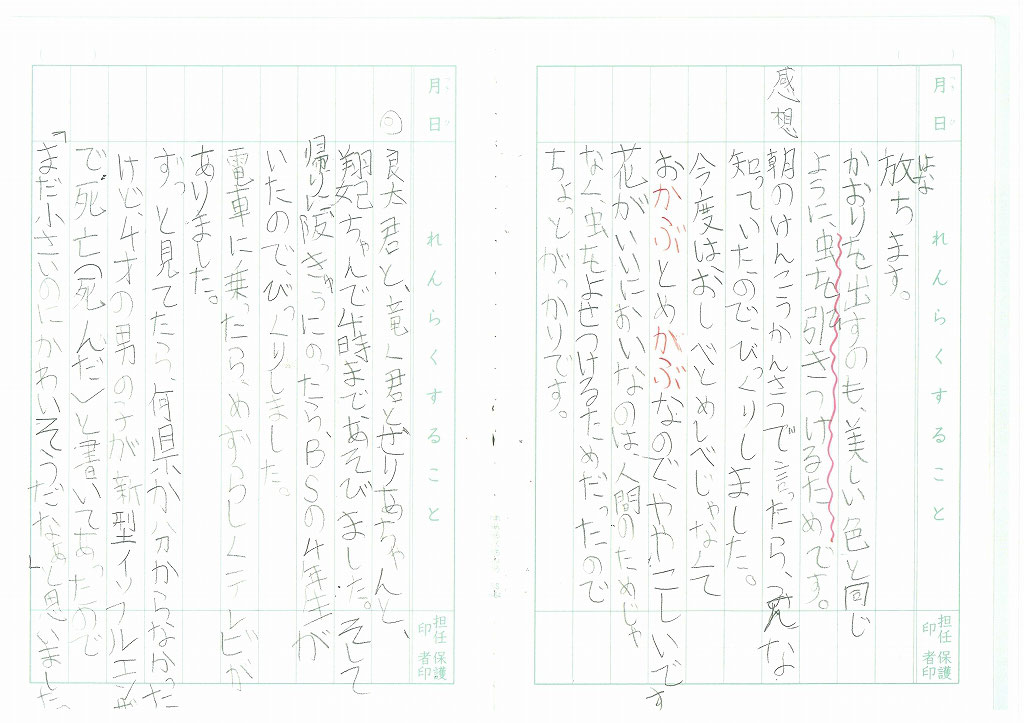 月 日
れんらくすること
担任印 保護者印
はな
放ちます。
かおりを出すのも、美しい色と同じ
ように、虫を引きつけるためです。
感想
朝のけんこうかんさつで言ったら、みんな
知っていたので、びっくりしました。
今度は、おしべとめしべじゃなくて
おかぶとめかぶなので、ややこしいです
花がいいにおいなのは、人間のためじゃ
なく虫をよせつけるためだったので
ちょっとがっかりです。
月 日
れんらくすること
担任印 保護者印
良太君と、竜く君とざりあちゃんと、
翔妃ちゃんで4時まであそびました。そして
帰りに阪きゅうにのったら、BSの4年生が
いたので、びっくりしました。
電車に乗ったら、めずらしくテレビが
ありました。
ずっと見てたら、何県か分からなかった
けど、4才の男の子が新型インフルエンザ
で死亡(死んだ)と書いてあったので
「まだ小さいのにかわいそうだなぁ」と思いました。